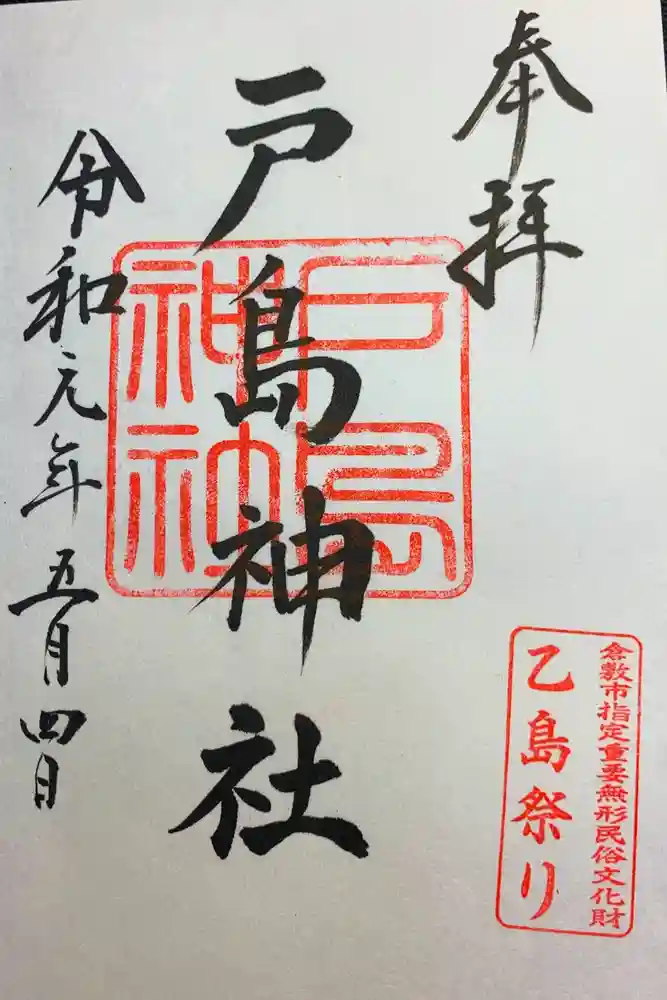 奉拝
戸島神社
戸島
神社
令和元年五月四日
倉敷市指定重要無形民俗文化財
乙島祭り